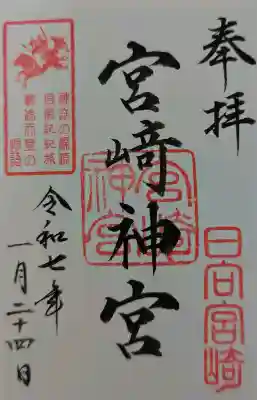 奉拝
日向宮崎
宮崎神宮
宮崎
神宮
令和七年
一月二十四日